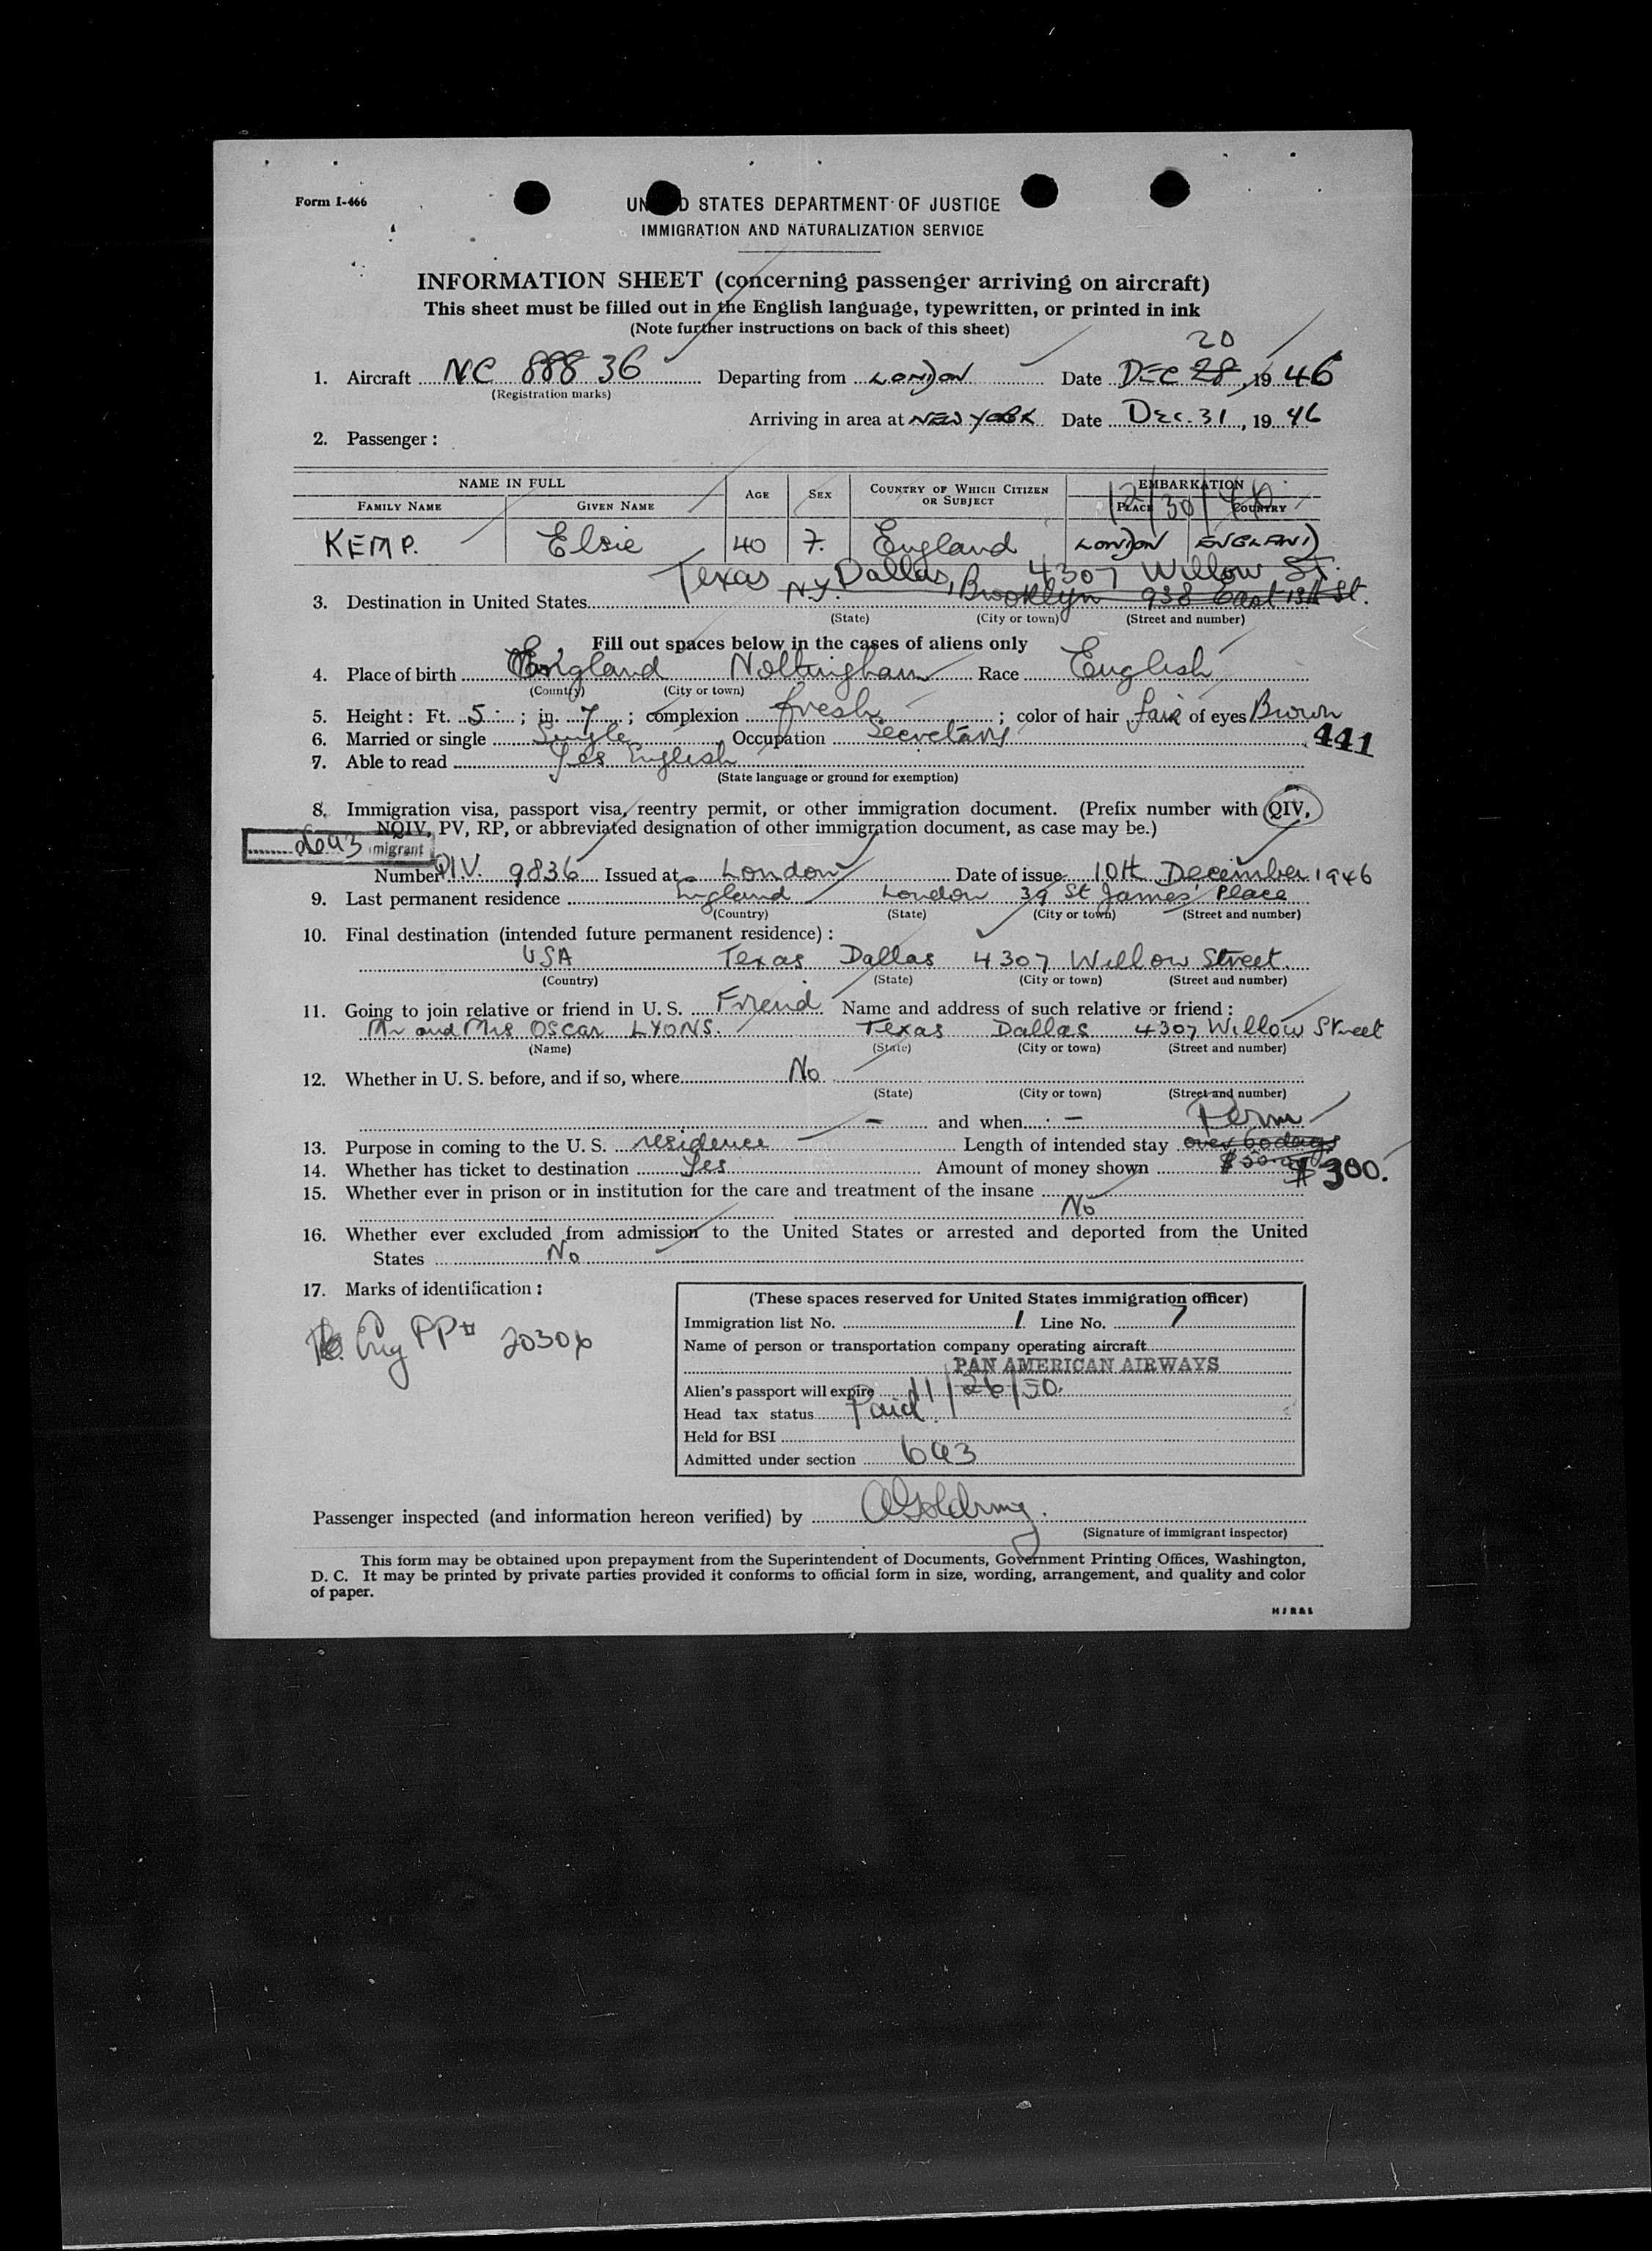 Form I-466
UNITED STATES DEPARTMENT OF JUSTICE
IMMIGRATION AND NATURALIZATION SERVICE
INFORMATION SHEET (concerning passenger arriving on aircraft)
This sheet must be filled out in the English language, typewritten, or printed in ink
(Note further instructions on back of this sheet)
20
1. Aircraft NC 88836 Departing from LONDON Date DEC 28, 1946
(Registration marks)
Arriving in area at NEW YORK Date Dec. 31, 1946
2. Passenger:
NAME IN FULL AGE SEX COUNTRY OF WHICH CITIZEN OR SUBJECT EMBARKATION
FAMILY NAME GIVEN NAME PLACE COUNTRY
12/30/46
KEMP. Elsie 40 F. England LONDON ENGLAND
Texas Dallas, 4307 Willow St.
3. Destination in United States N.Y. Brooklyn 938 East 13th St.
(State) (City or town) (Street and number)
Fill out spaces below in the cases of aliens only
4. Place of birth England Nottingham Race English
(Country) (City or town)
5. Height: Ft. 5; in. 7; complexion fresh; color of hair fair of eyes Brown
6. Married or single Single Occupation Secretary
441
7. Able to read Yes English
(State language or ground for exemption)
8. Immigration visa, passport visa, reentry permit, or other immigration document. (Prefix number with QIV,
NQIV, PV, RP, or abbreviated designation of other immigration document, as case may be.)
6a3 migrant
Number QIV. 9836 Issued at London Date of issue 10th December 1946
9. Last permanent residence England London 39 St James' Place
(Country) (State) (City or town) (Street and number)
10. Final destination (intended future permanent residence):
USA Texas Dallas 4307 Willow Street.
(Country) (State) (City or town) (Street and number)
11. Going to join relative or friend in U. S. Friend Name and address of such relative or friend:
Mr and Mrs OSCAR LYONS. Texas Dallas 4307 Willow Street
(Name) (State) (City or town) (Street and number)
12. Whether in U. S. before, and if so, where No
(State) (City or town) (Street and number)
- and when - Perm
13. Purpose in coming to the U. S. residence Length of intended stay over 60 days
14. Whether has ticket to destination Yes Amount of money shown $50.00 $300.
15. Whether ever in prison or in institution for the care and treatment of the insane
No
16. Whether ever excluded from admission to the United States or arrested and deported from the United
States No
17. Marks of identification:
Eng PP# 20306
(These spaces reserved for United States immigration officer)
Immigration list No. 1 Line No. 7
Name of person or transportation company operating aircraft
PAN AMERICAN AIRWAYS
Alien's passport will expire 11/26/50.
Head tax status Paid.
Held for BSI
Admitted under section 6a3
Passenger inspected (and information hereon verified) by AGoldring.
(Signature of immigrant inspector)
This form may be obtained upon prepayment from the Superintendent of Documents, Government Printing Offices, Washington,
D. C. It may be printed by private parties provided it conforms to official form in size, wording, arrangement, and quality and color
of paper.